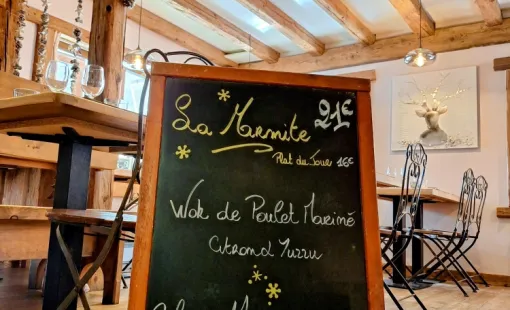 La Marmite 21€
Plat du Jour 16€
Wok de Poulet Mariné
Citrond Yuzu